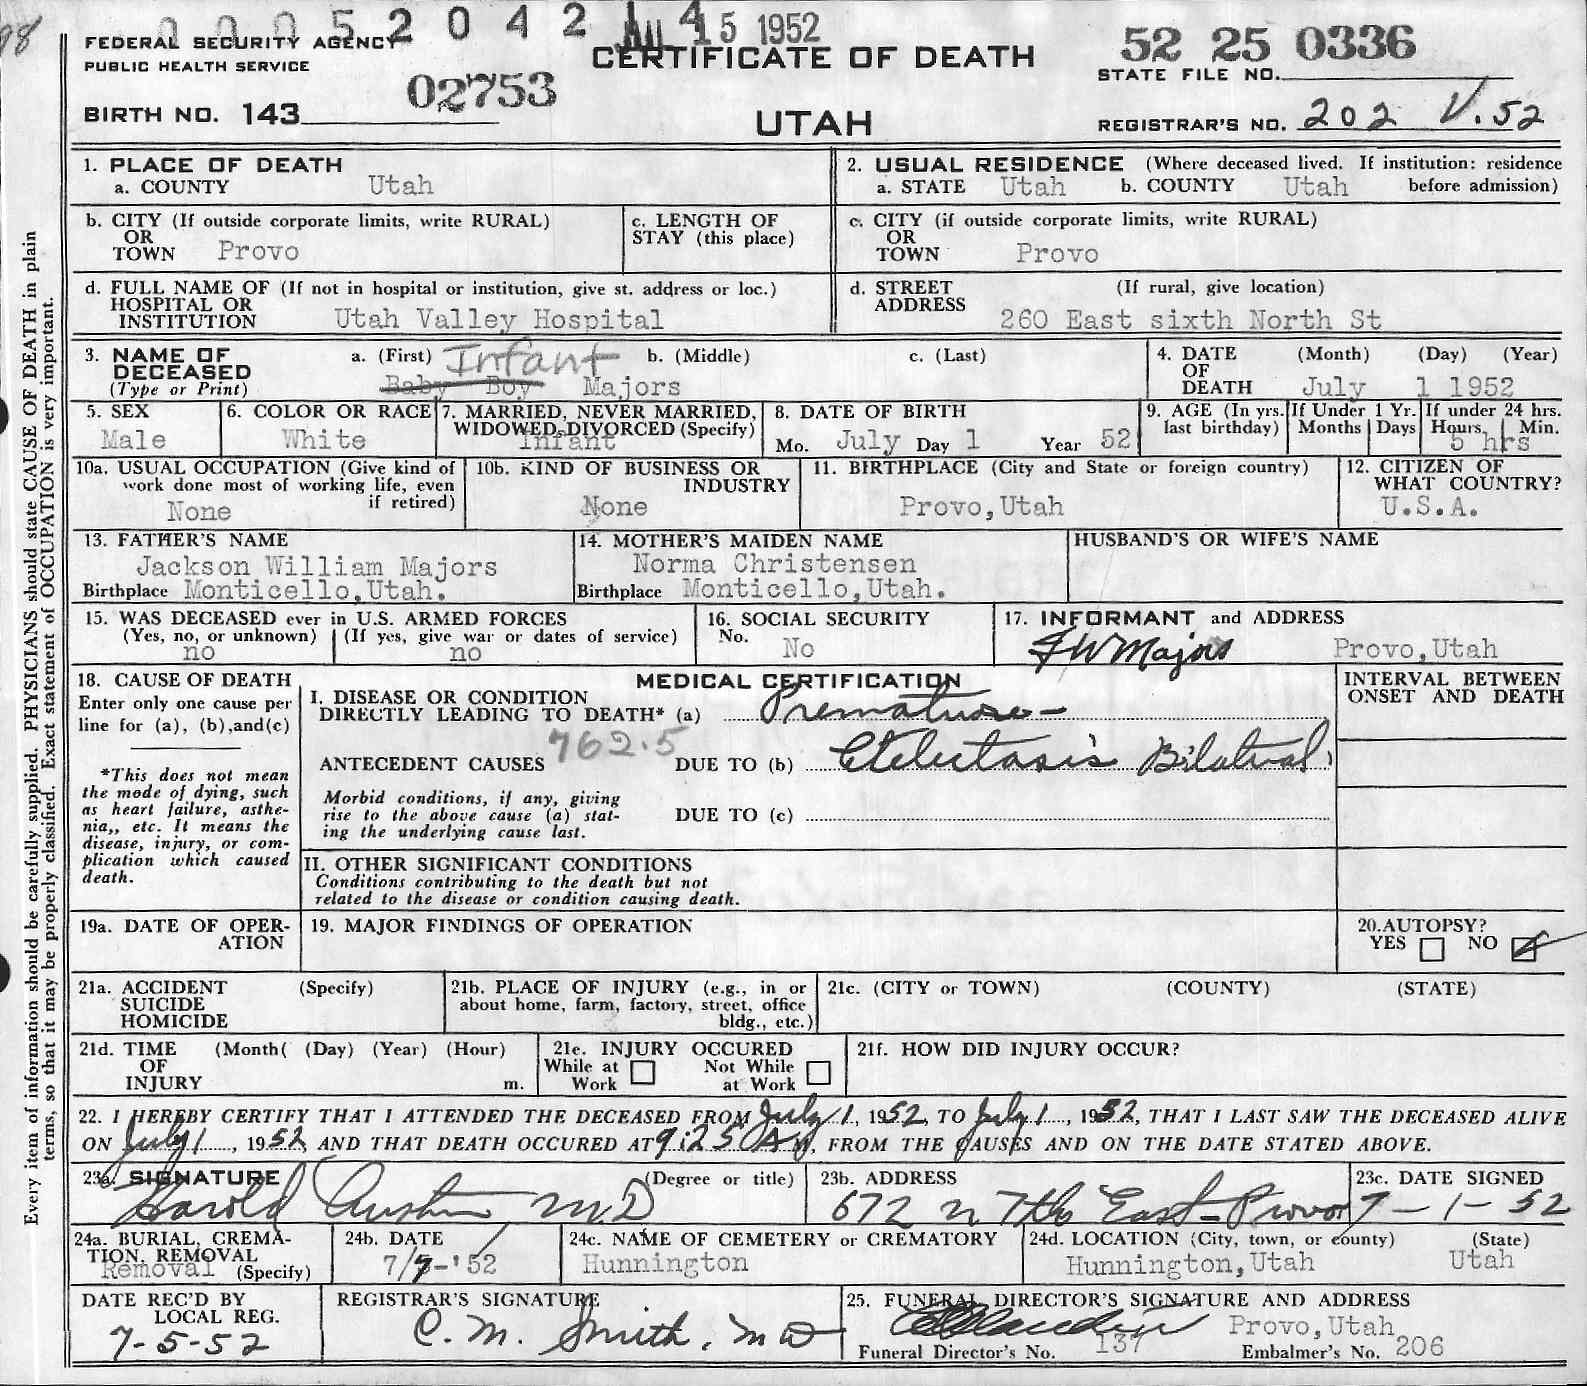 98
00052042 JUL 15 1952
FEDERAL SECURITY AGENCY
PUBLIC HEALTH SERVICE
CERTIFICATE OF DEATH
52 25 0336
STATE FILE NO.
BIRTH NO. 143 02753
UTAH
REGISTRAR'S NO. 202 V.52
Every item of information should be carefully supplied. PHYSICIANS should state CAUSE OF DEATH in plain
terms, so that it may be properly classified. Exact statement of OCCUPATION is very important.
1. PLACE OF DEATH
a. COUNTY Utah
2. USUAL RESIDENCE (Where deceased lived. If institution: residence
a. STATE Utah b. COUNTY Utah before admission)
b. CITY (If outside corporate limits, write RURAL)
OR
TOWN Provo
c. LENGTH OF
STAY (this place)
c. CITY (if outside corporate limits, write RURAL)
OR
TOWN Provo
d. FULL NAME OF (If not in hospital or institution, give st. address or loc.)
HOSPITAL OR
INSTITUTION Utah Valley Hospital
d. STREET (If rural, give location)
ADDRESS
260 East sixth North St
3. NAME OF
DECEASED
(Type or Print)
a. (First) Infant b. (Middle) c. (Last)
Baby Boy Majors
4. DATE (Month) (Day) (Year)
OF
DEATH July 1 1952
5. SEX
Male
6. COLOR OR RACE
White
7. MARRIED, NEVER MARRIED,
WIDOWED, DIVORCED (Specify)
Infant
8. DATE OF BIRTH
Mo. July Day 1 Year 52
9. AGE (In yrs.
last birthday)
If Under 1 Yr.
Months Days
If under 24 hrs.
Hours Min.
5 hrs
10a. USUAL OCCUPATION (Give kind of
work done most of working life, even
if retired)
None
10b. KIND OF BUSINESS OR
INDUSTRY
None
11. BIRTHPLACE (City and State or foreign country)
Provo,Utah
12. CITIZEN OF
WHAT COUNTRY?
U.S.A.
13. FATHER'S NAME
Jackson William Majors
Birthplace Monticello,Utah.
14. MOTHER'S MAIDEN NAME
Norma Christensen
Birthplace Monticello,Utah.
HUSBAND'S OR WIFE'S NAME
15. WAS DECEASED ever in U.S. ARMED FORCES
(Yes, no, or unknown) (If yes, give war or dates of service)
no no
16. SOCIAL SECURITY
No.
No
17. INFORMANT and ADDRESS
J W Majors Provo,Utah
18. CAUSE OF DEATH
Enter only one cause per
line for (a), (b),and(c)
*This does not mean
the mode of dying, such
as heart failure, asthe-
nia,, etc. It means the
disease, injury, or com-
plication which caused
death.
MEDICAL CERTIFICATION
I. DISEASE OR CONDITION
DIRECTLY LEADING TO DEATH* (a) Premature-
762.5
ANTECEDENT CAUSES DUE TO (b) Atelectasis Bilateral
Morbid conditions, if any, giving
rise to the above cause (a) stat-
ing the underlying cause last.
DUE TO (c)
II. OTHER SIGNIFICANT CONDITIONS
Conditions contributing to the death but not
related to the disease or condition causing death.
INTERVAL BETWEEN
ONSET AND DEATH
19a. DATE OF OPER-
ATION
19. MAJOR FINDINGS OF OPERATION
20.AUTOPSY?
YES NO
21a. ACCIDENT (Specify)
SUICIDE
HOMICIDE
21b. PLACE OF INJURY (e.g., in or
about home, farm, factory, street, office
bldg., etc.)
21c. (CITY or TOWN) (COUNTY) (STATE)
21d. TIME (Month( (Day) (Year) (Hour)
OF
INJURY m.
21e. INJURY OCCURED
While at Not While
Work at Work
21f. HOW DID INJURY OCCUR?
22. I HEREBY CERTIFY THAT I ATTENDED THE DECEASED FROM July 1, 1952, TO July 1, 1952, THAT I LAST SAW THE DECEASED ALIVE
ON July 1, 1952, AND THAT DEATH OCCURED AT 9:25 A M, FROM THE CAUSES AND ON THE DATE STATED ABOVE.
23a. SIGNATURE (Degree or title)
Harold Austin M.D
23b. ADDRESS
672 N 7th East - Provo
23c. DATE SIGNED
7-1-52
24a. BURIAL, CREMA-
TION, REMOVAL
Removal (Specify)
24b. DATE
7/7-'52
24c. NAME OF CEMETERY or CREMATORY
Hunnington
24d. LOCATION (City, town, or county) (State)
Hunnington,Utah Utah
DATE REC'D BY
LOCAL REG.
7-5-52
REGISTRAR'S SIGNATURE
C. M. Smith, MD
25. FUNERAL DIRECTOR'S SIGNATURE AND ADDRESS
Provo,Utah
Funeral Director's No. 137 Embalmer's No. 206